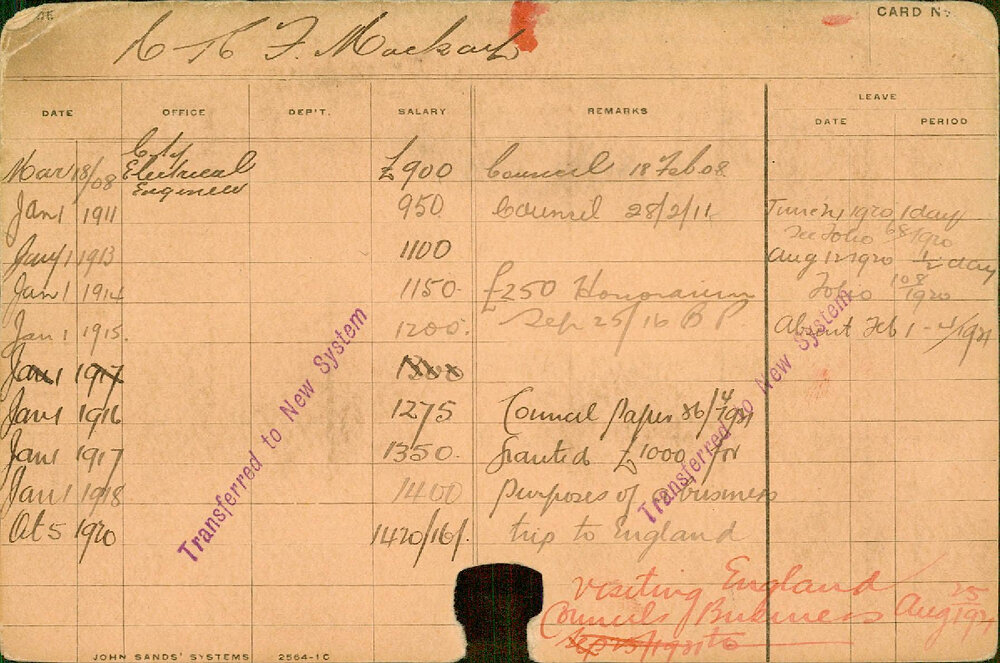 CARD No.
H. F. Mackay
DATE OFFICE DEP'T. SALARY REMARKS LEAVE
DATE PERIOD
Mar 18/08 City Electrical Engineer £900 Council 18 Feb 08
Jan 1 1911 950 Council 28/2/11 June 21 1920 1 day
See Folio 68/1920
Jany 1 1913 1100 Aug 12 1920 1/2 day
Jan 1 1914 1150 £250 Honorarium Folio 108/1920
Jan 1 1915. 1200. Sep 25/16 Absent Feb 1 - 4/1921
Jan 1 1917 1300
Jan 1 1916 1275 Council Paper 36/14/1921
Jan 1 1917 1350. Granted £1000 for
Jan 1 1918 1400 purposes of a business
Oct 5 1920 1420/16/. trip to England
Transferred to New System
Transferred to New System
Visiting England
Councils Business Aug 25 1921
Sep 25/1921 to
JOHN SANDS' SYSTEMS 2564-1C